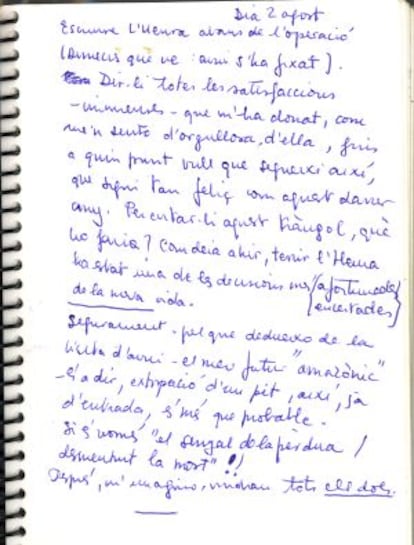 Dia 2 agost
Escriure l'Heura abans de l'operació
(Dimecres que ve: avui s'ha fixat).
Dir-li totes les satisfaccions
- immenses - que m'ha donat, com
me'n sento d'orgullosa, d'ella, fins
a quin punt vull que segueixi així,
que sigui tan feliç com aquest darrer
any. Per evitar-li aquest tràngol, què
no faria? Com deia ahir, tenir l'Heura
ha estat una de les decisions més (afortunades
encertades)
de la meva vida.
Segurament - pel que dedueixo de la
visita d'avui - el meu futur "amazònic"
- és a dir, extirpació d'un pit, així, ja
d'entrada, és més que probable.
Si és només "el senyal de la pèrdua /
desmentint la mort"!!
Després, m'imagino, vindran tots els dols.